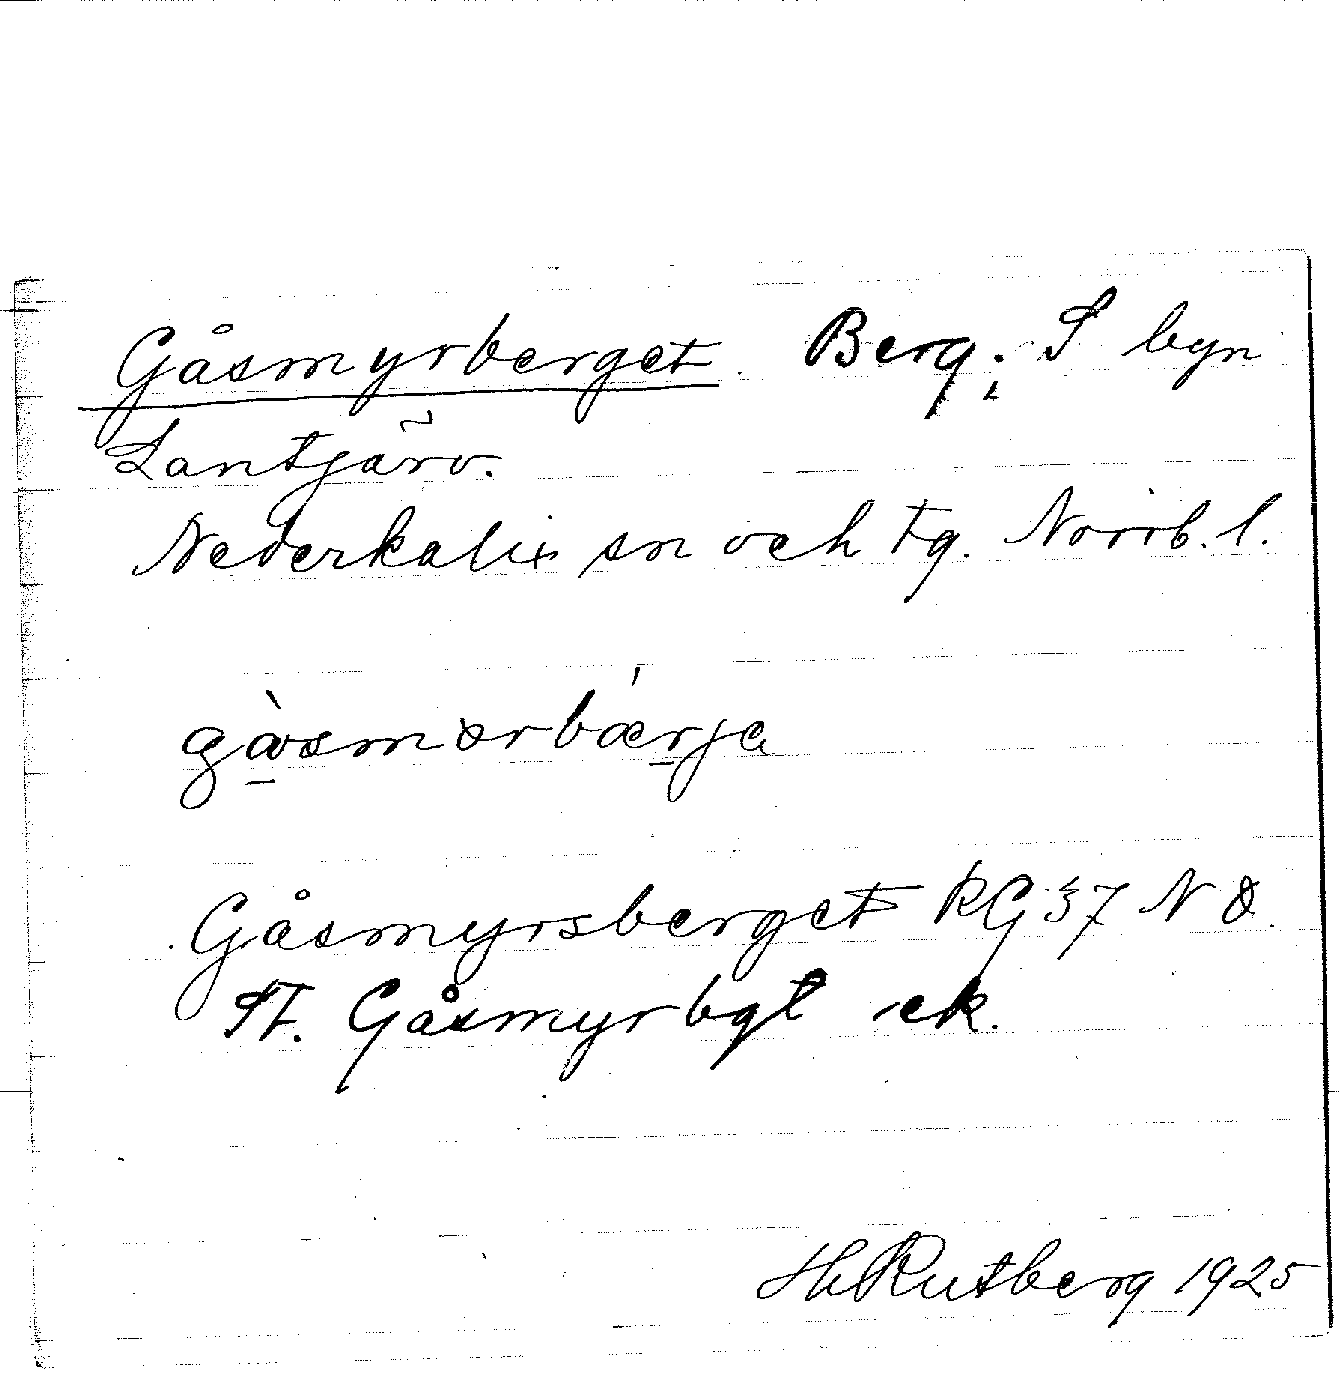 Gåsmyrberget. Berg; i S byn
Lantjärv.
Nederkalix sn och tg. Norrb. l.
gàsmərbǽrja
Gåsmyrsberget RG 37 N Ö.
St. Gåsmyrbgt ek.
H Rutberg 1925